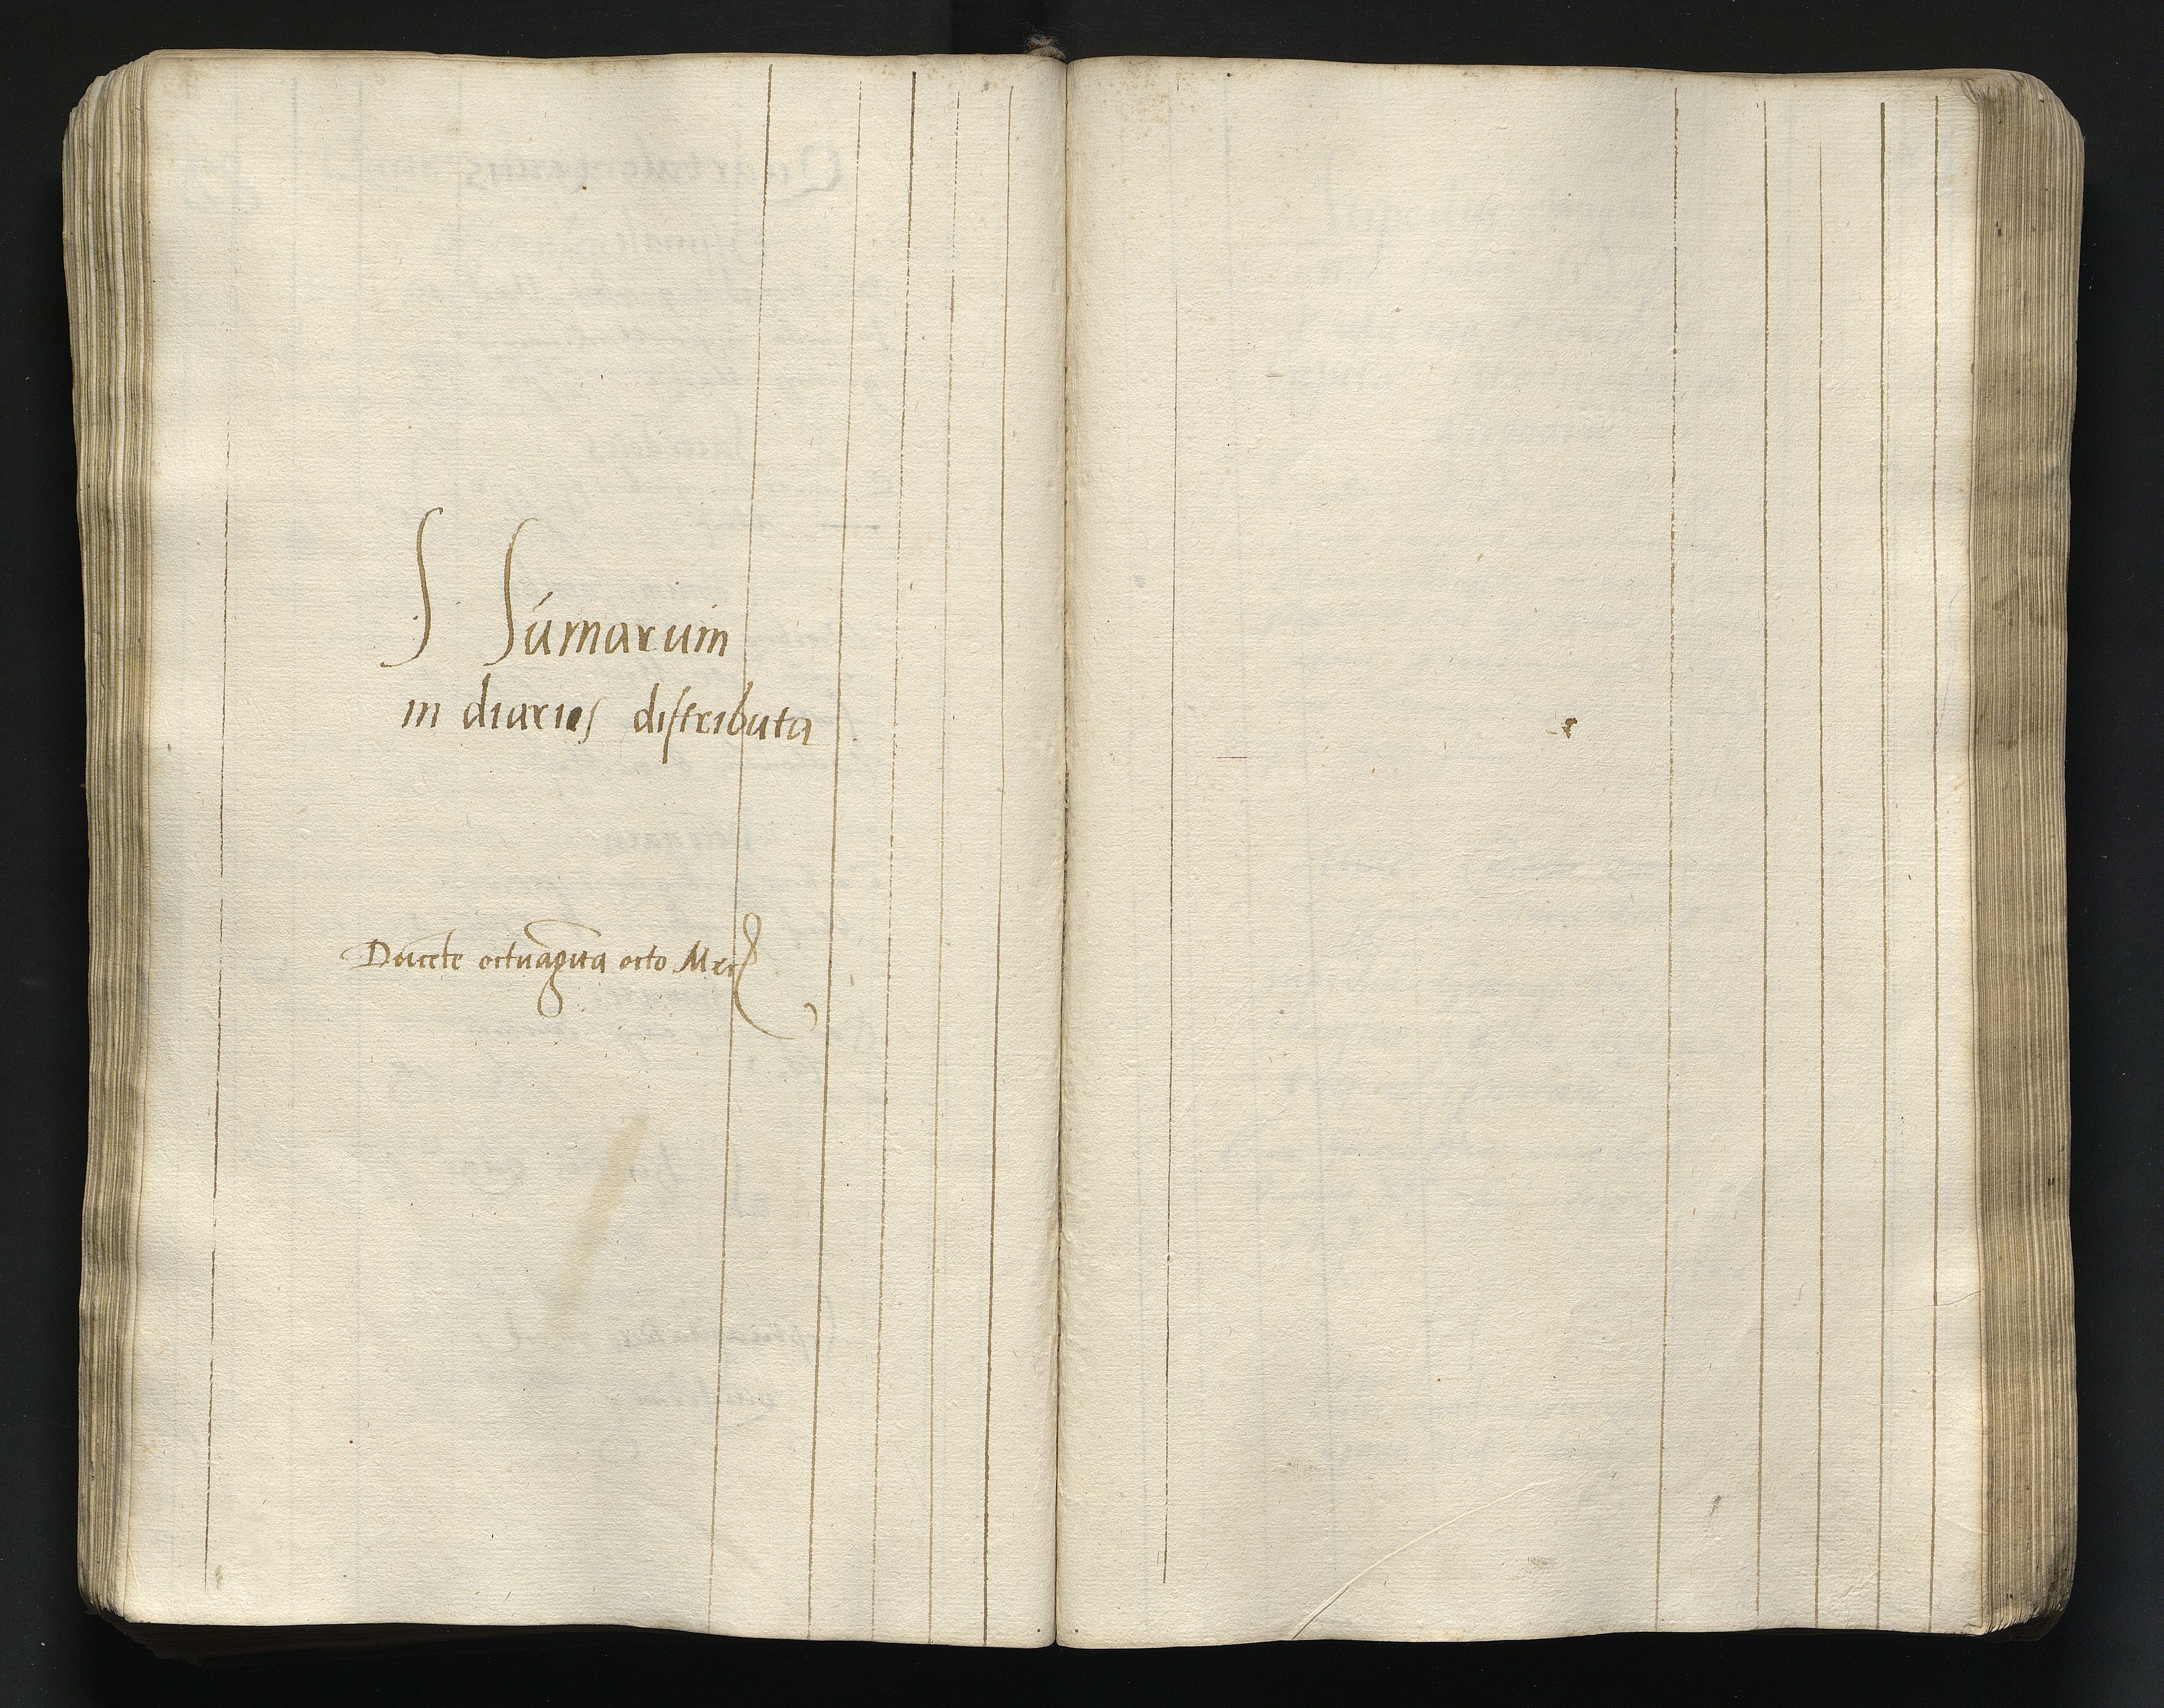 S Sumarum
in diaries distributa
Ducēte octuagīta octo Mrc